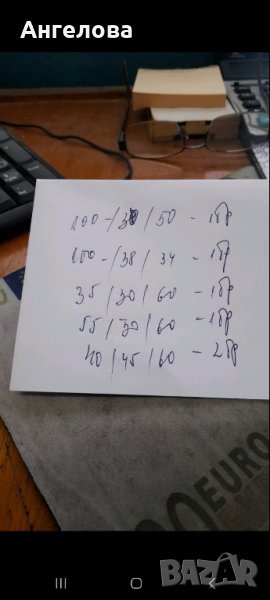 Ангелова
100-/38/50 - 1бр
100-/38/34 - 1бр
35/30/60 - 1бр
55/30/60 - 1бр
40/45/60 - 2бр
EURO
BAZAR